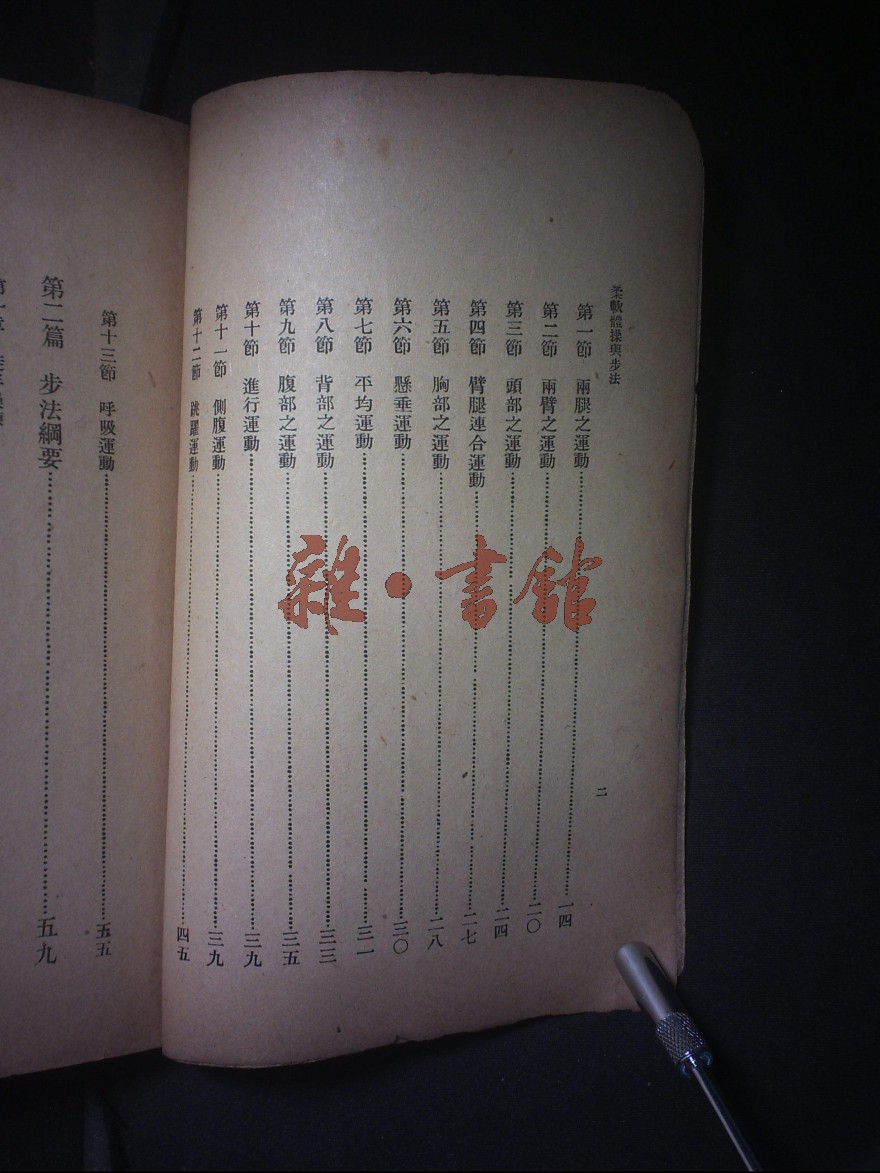 柔軟體操與步法
二
第一節 兩腿之運動 一四
第二節 兩臂之運動 二〇
第三節 頭部之運動 二四
第四節 臂腿連合運動 二七
第五節 胸部之運動 二八
第六節 懸垂運動 三〇
第七節 平均運動 三一
第八節 背部之運動 三三
第九節 腹部之運動 三五
第十節 進行運動 三九
第十一節 側腹運動 三九
第十二節 跳躍運動 四五
第十三節 呼吸運動 五五
第二篇 步法綱要 五九
雜·書館